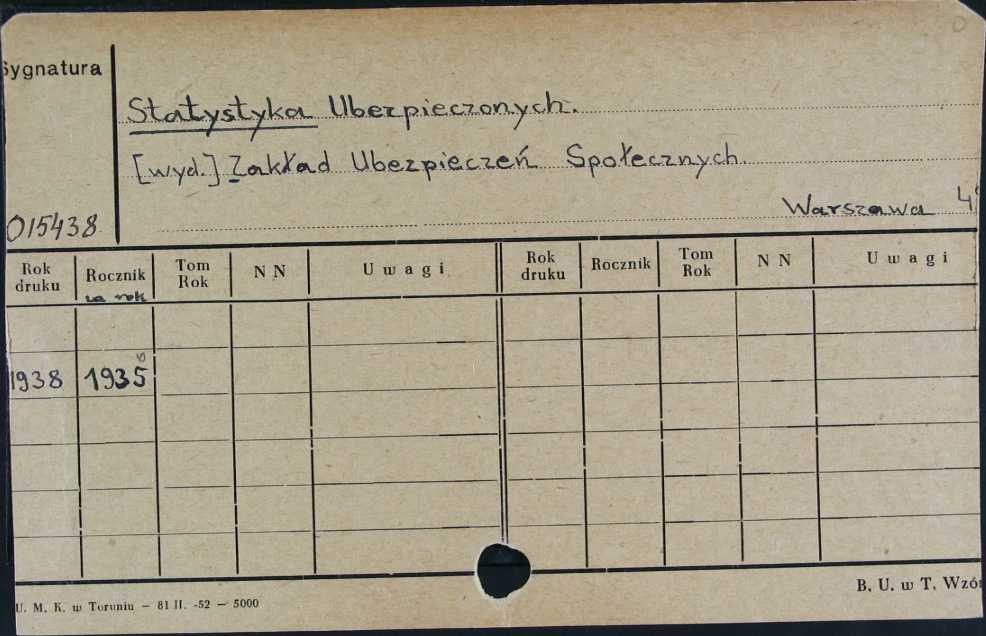 Sygnatura
Statystyka Ubezpieczonych.
[wyd.] Zakład Ubezpieczeń Społecznych.
Warszawa 4°
015438
Rok druku Rocznik za rok Tom Rok N N Uwagi Rok druku Rocznik Tom Rok N N Uwagi
1938 1935
U. M. K. w Toruniu — 81 II. -52 — 5000
B. U. w T. Wzór